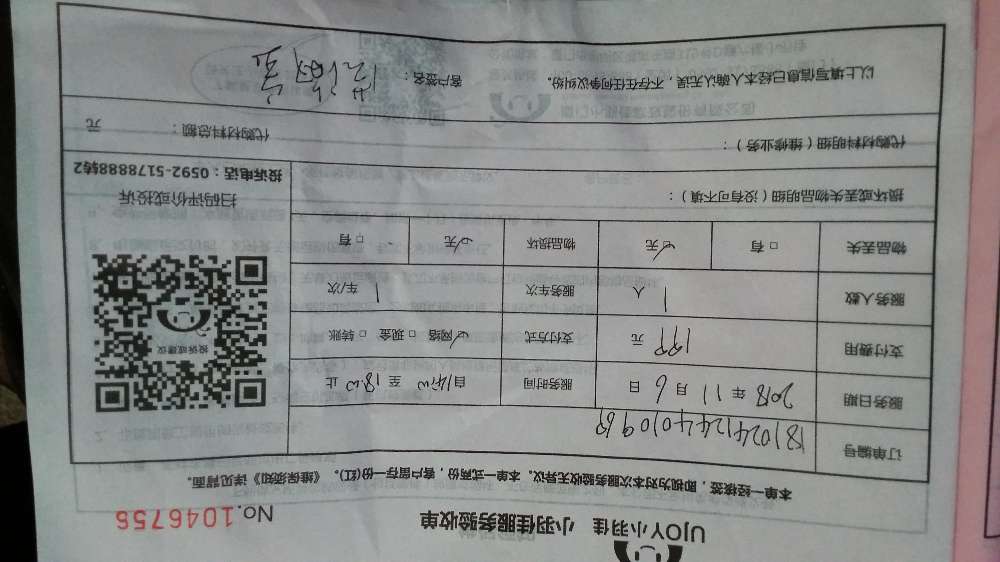 UJOY小羽佳 小羽佳服务验收单 No.1046756
本单一经核签，即视为对本次服务验收无异议。本单一式两份，客户留存一份(红)。《维保须知》详见背面。
订单编号 1810241244010969
服务日期 2018 年 11 月 6 日 服务时间 自 14:00 至 18:00 止
支付费用 199 元 支付方式 ☑网络 □现金 □转账
服务人数 1 人 服务车次 1 车/次
物品丢失 □有 ☑无 物品损坏 ☑无 □有
投诉或建议
扫码评价或投诉
投诉电话：0592-5178888转2
损坏或丢失物品明细（没有可不填）：
代购材料明细（维修业务）：
代购材料总额： 元
以上填写信息已经本人确认无误，不存在任何争议纠纷。 客户签名：